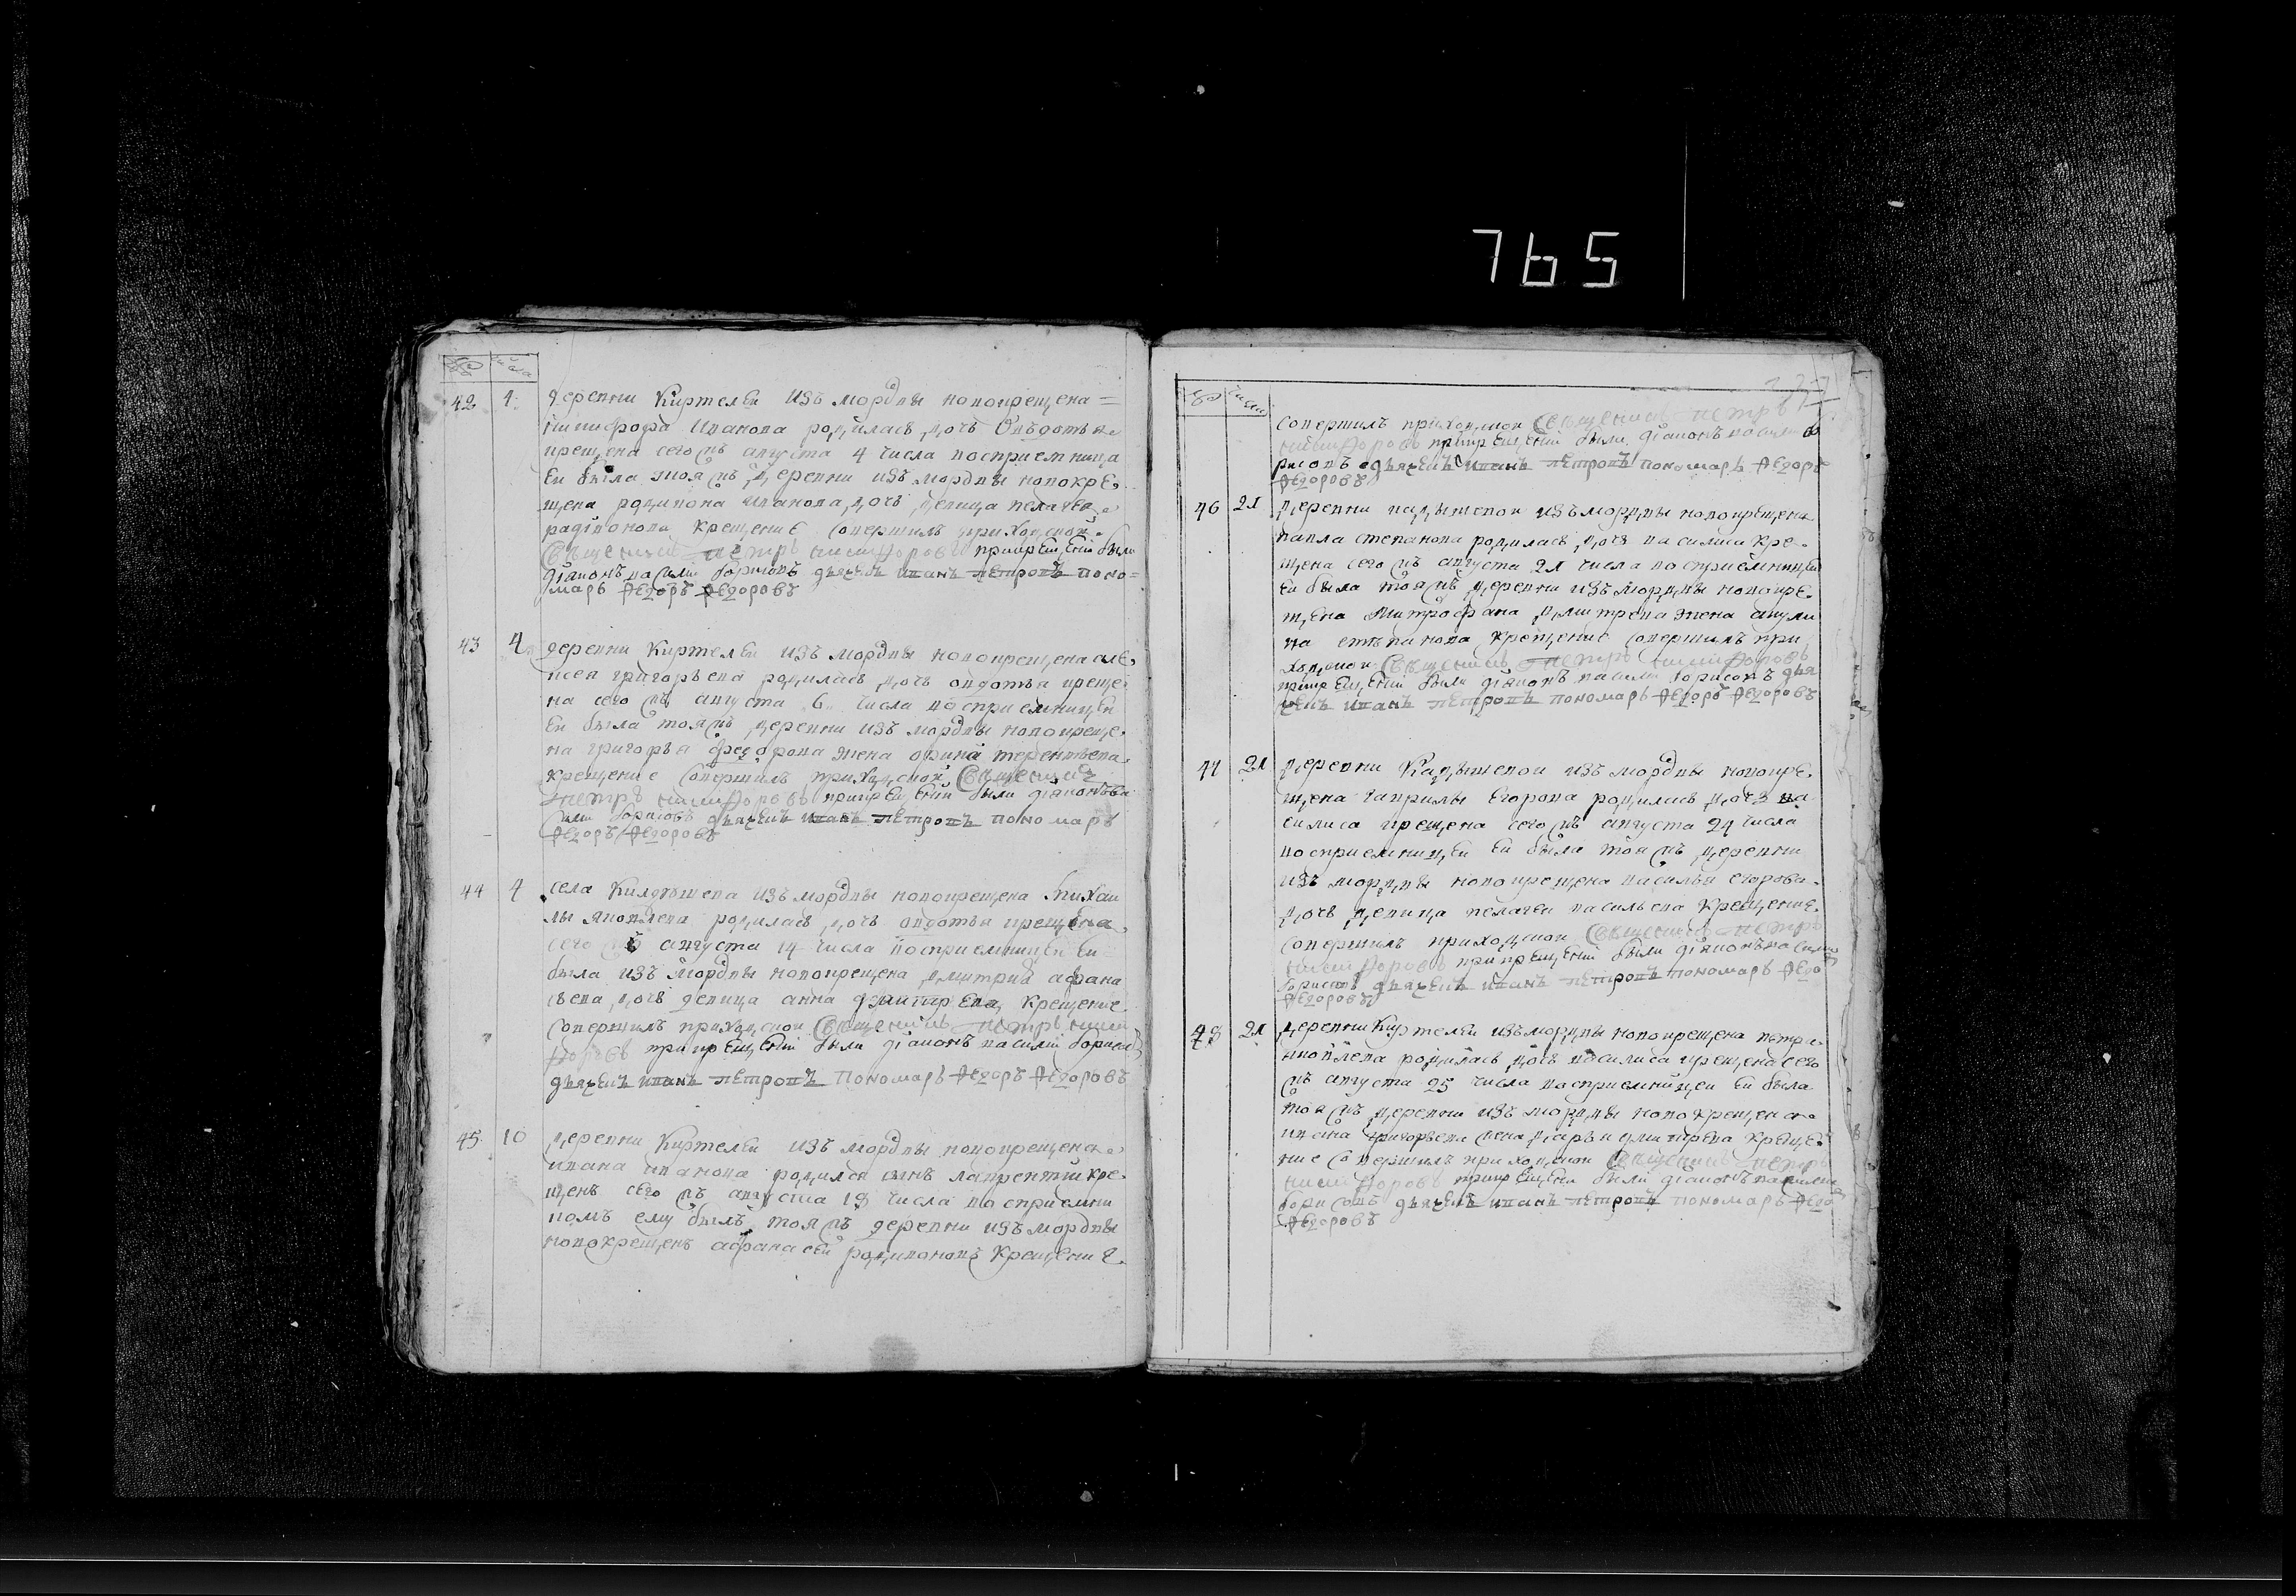 765
42 1 деревни Киртелеи изъ мордвы новокрещена
никифора Иванова родилась дочь Овдотья
крещена сего мѣ августа 4 числа восприемница
еи была тоя мъ деревни изъ мордвы новокре
щена родивона иванова дочь девица пелагея
радивонова крещение совершилъ приходскои
Священникъ петръ никифоровъ при крещении были
дiаконъ василии борисовъ дьячекъ иванъ петровъ поно
марь Федоръ Федоровъ
43 4 деревни Киртелеи изъ мордвы новокрещена але
ксея григорьева родилась дочь овдотья креще
на сего мъ августа 6 числа восприемницеи
еи была тоя мъ деревни изъ мордвы новокреще
на григорья федорова жена орина терентьева
крещение совершилъ приходскои Священникъ
петръ никифоровъ при крещении были дiаконъ ва
силии борисовъ дьячекъ иванъ петровъ пономарь
Федоръ Федоровъ
44 4 села Килдюшева изъ мордвы новокрещена михаи
лы яковлева родилась дочь овдотья крещена
сего мъ августа 14 числа восприемницеи еи
была изъ мордвы новокрещена дмитрия афана
сьева дочь девица анна дмитрева крещение
совершилъ приходскои Священникъ петръ ники
форовъ при крещении были дiаконъ василии борисовъ
дьячекъ иванъ петровъ пономарь Федоръ Федоровъ
45 10 деревни Киртелеи изъ мордвы новокрещена
ивана иванова родился сынъ лаврентии кре
щенъ сего мъ августа 18 числа восприемни
комъ ему былъ тоя мъ деревни изъ мордвы
новокрещенъ афанасеи родивоновъ крещение
совершилъ приходскои Священникъ петръ
никифоровъ при крещении были дiаконъ василии бо
рисовъ дьячекъ иванъ петровъ пономарь Федоръ
Федоровъ
46 21 деревни изъ мордвы новокрещена
павла степанова родилась дочь василиса кре
щена сего мъ августа 21 числа восприемницеи
еи была тоя мъ деревни изъ мордвы новокре
щена Митрофана дмитрева жена акули
на степанова крещение совершилъ при
ходскои Священникъ петръ никифоровъ
при крещении были дiаконъ василии борисовъ дья
чекъ иванъ петровъ пономарь Федоръ Федоровъ
21 деревни изъ мордвы новокре
щена гаврилы Егорова родилась дочь ва
силиса крещена сего мъ августа 24 числа
восприемницеи еи была тоя мъ деревни
изъ мордвы новокрещена василья егорова
дочь девица пелагея васильева крещение
совершилъ приходскои Священникъ петръ
никифоровъ при крещении были дiаконъ василии
борисовъ дьячекъ иванъ петровъ пономарь Федо
Федоровъ
48 21 деревни Киртелеи изъ мордвы новокрещена петра
яковлева родилась дочь василиса крещена сего
мъ августа 25 числа восприемницеи еи была
тоя мъ деревни изъ мордвы новокрещена
ивана григорьева жена дарья дмитрева креще
ние совершилъ приходскои Священникъ петръ
никифоровъ при крещении были дiаконъ василии
борисовъ дьячекъ иванъ петровъ пономарь Федо
Федоровъ